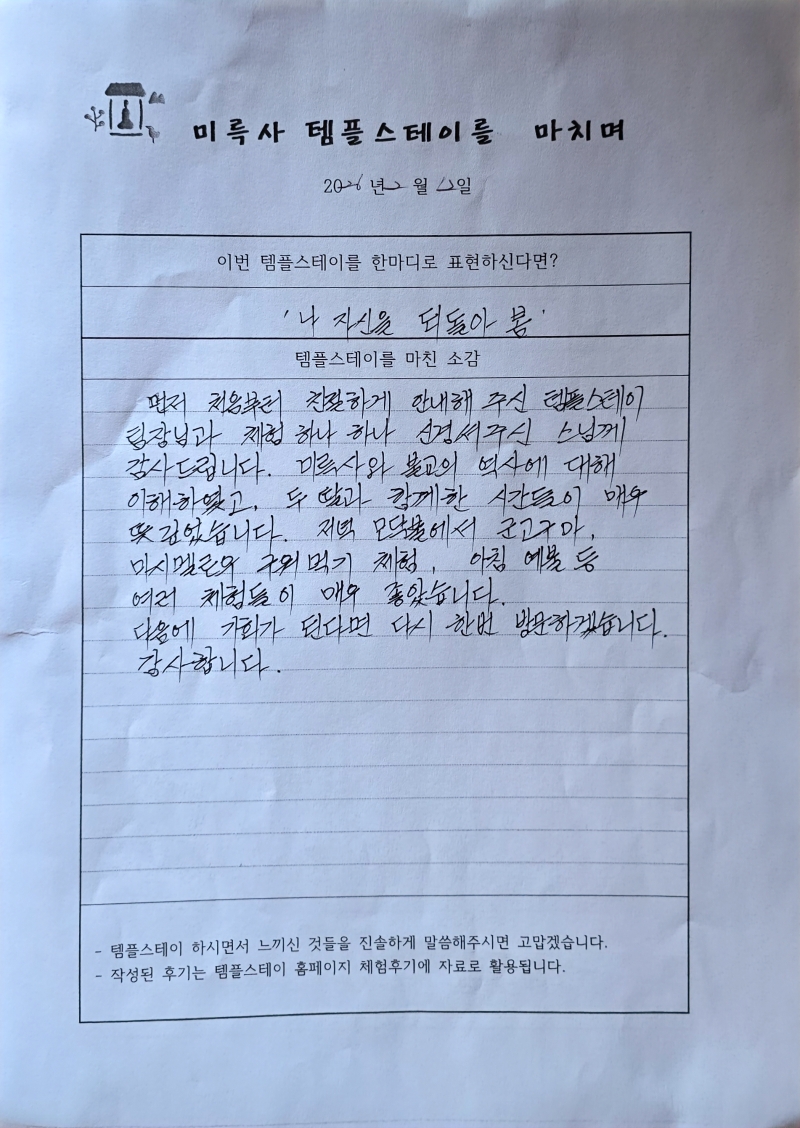 미륵사 템플스테이를 마치며
2026년 2월 일
이번 템플스테이를 한마디로 표현하신다면?
'나 자신을 되돌아 봄'
템플스테이를 마친 소감
먼저 처음부터 친절하게 안내해 주신 템플스테이
팀장님과 체험 하나 하나 신경써주신 스님께
감사드립니다. 미륵사와 불교의 역사에 대해
이해하였고, 두 딸과 함께한 시간들이 매우
뜻 깊었습니다. 저녁 모닥불에서 군고구마,
마시멜로우 구워먹기 체험, 아침 예불 등
여러 체험들이 매우 좋았습니다.
다음에 기회가 된다면 다시 한번 방문하겠습니다.
감사합니다.
- 템플스테이 하시면서 느끼신 것들을 진솔하게 말씀해주시면 고맙겠습니다.
- 작성된 후기는 템플스테이 홈페이지 체험후기에 자료로 활용됩니다.